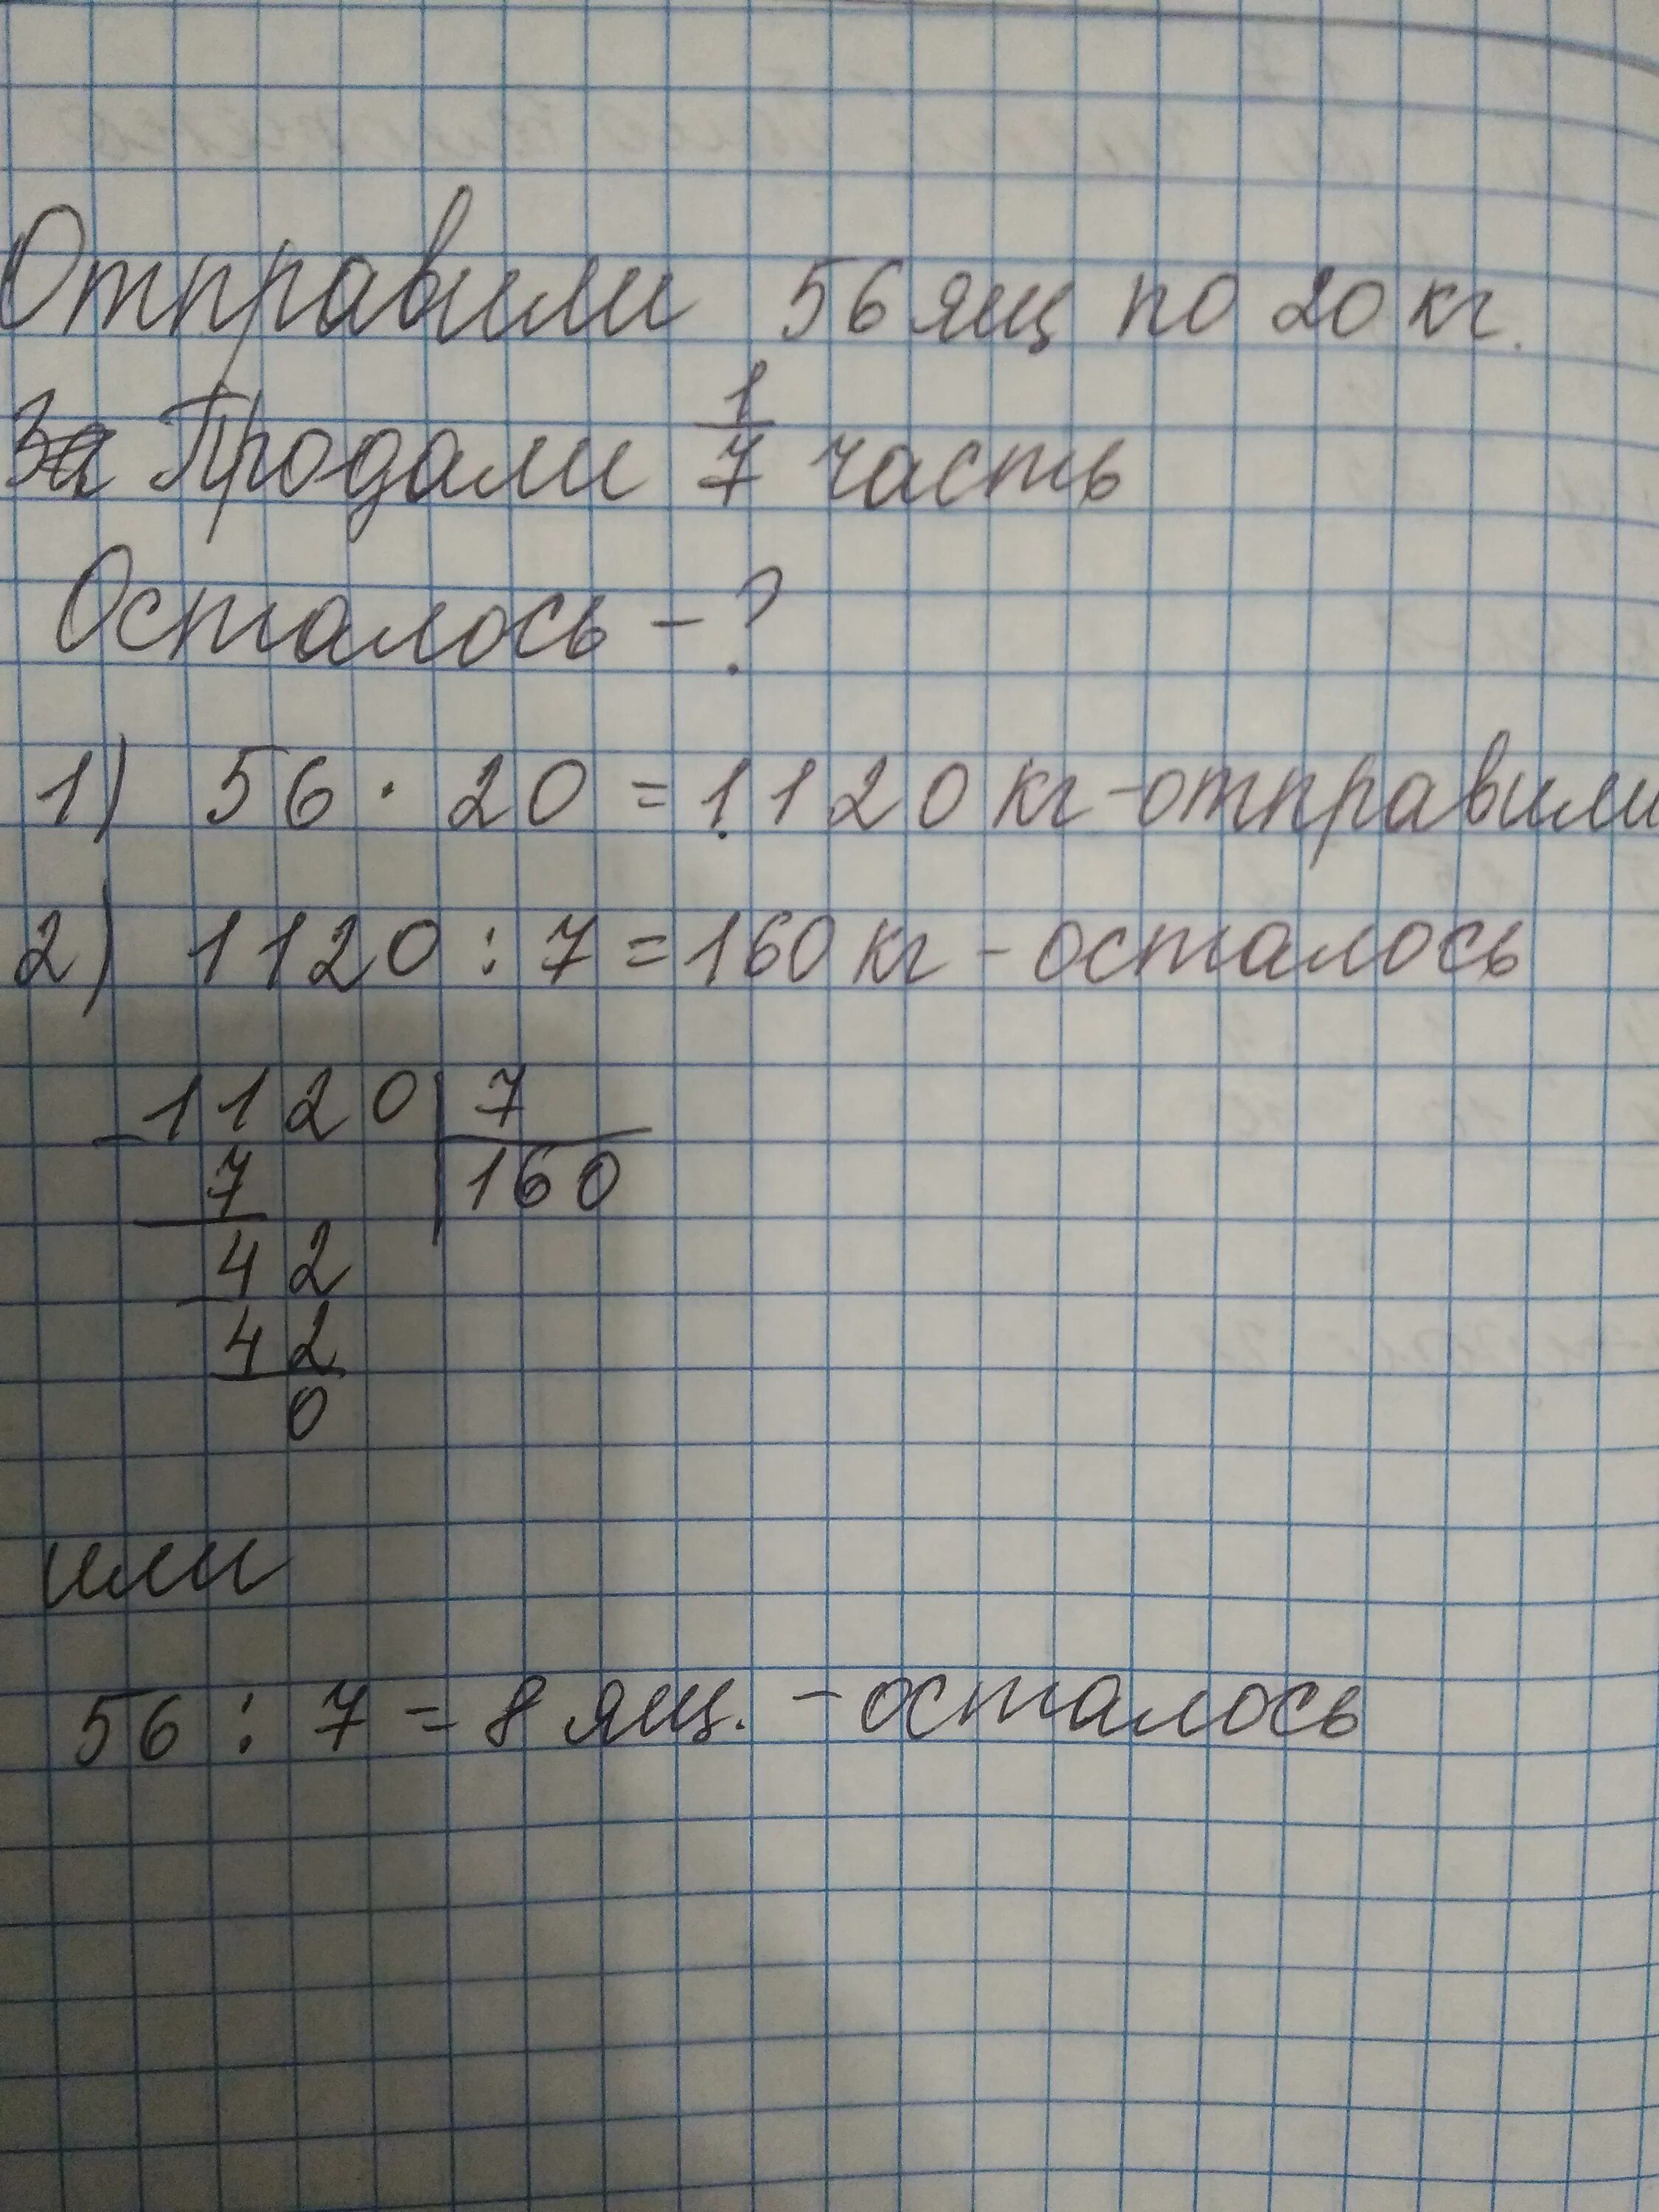 Отправили 56 ящ по 20 кг.
За Продали 1/7 часть
Осталось - ?
1) 56 · 20 = 1120 кг - отправили
2) 1120 : 7 = 160 кг - осталось
1120 7
7 160
42
42
0
или
56 : 7 = 8 ящ. - осталось